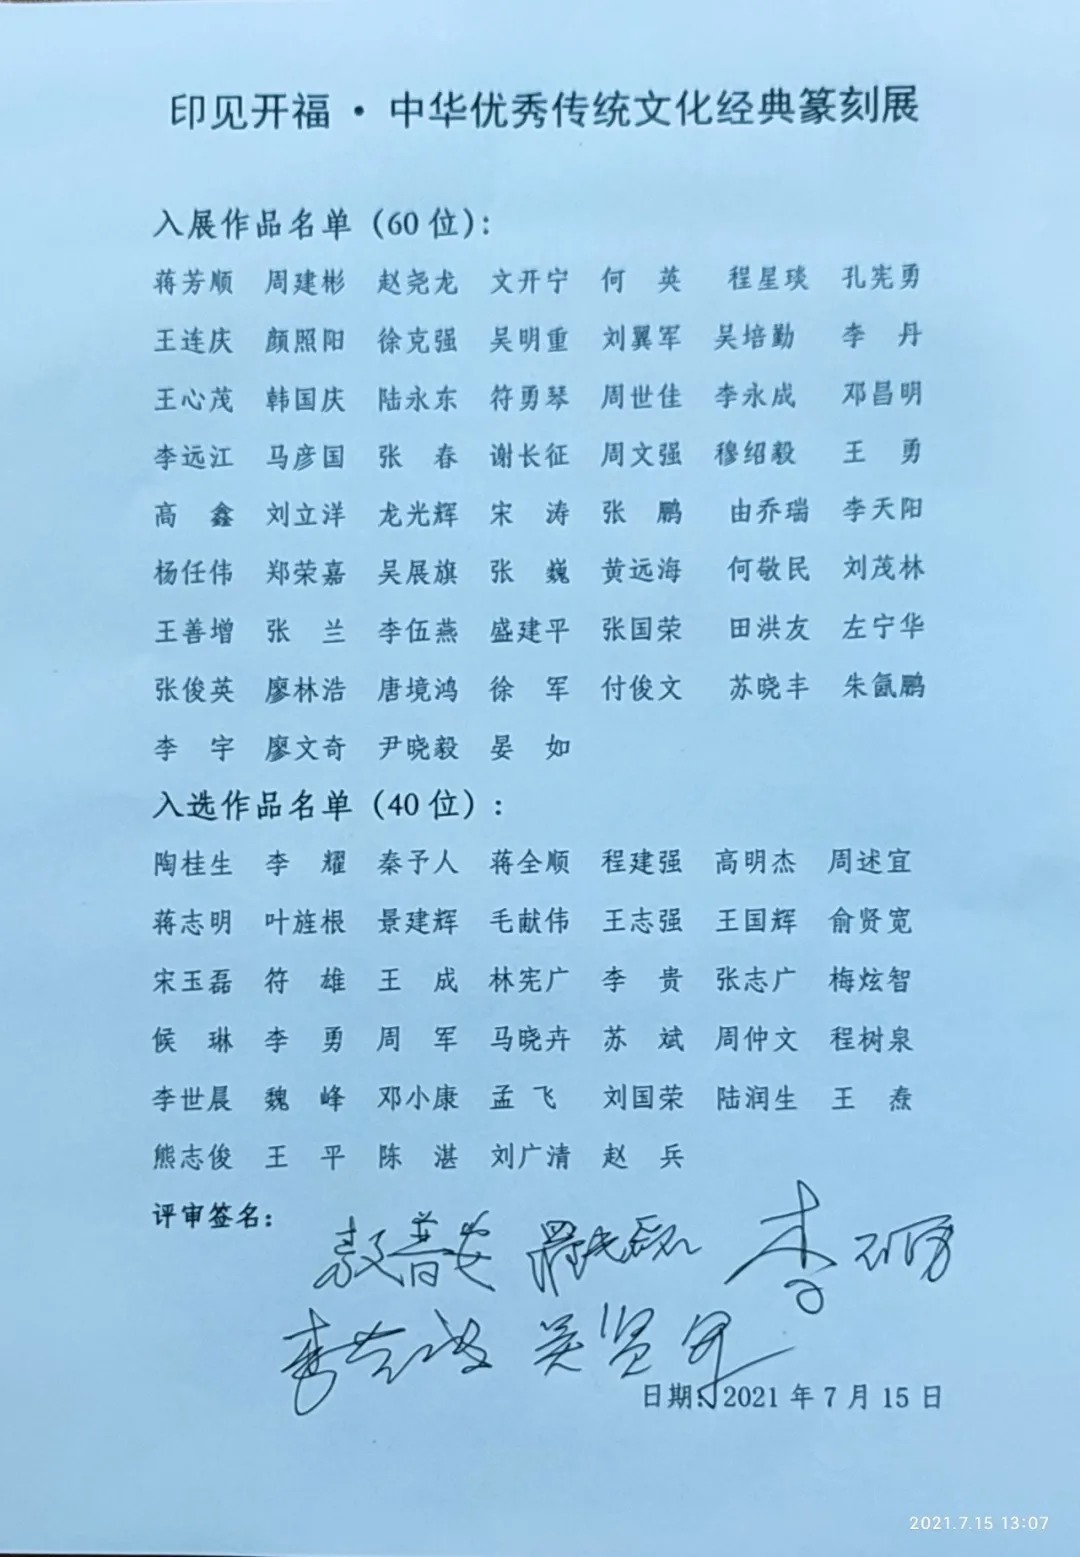 印见开福·中华优秀传统文化经典篆刻展
入展作品名单（60 位）：
蒋芳顺 周建彬 赵尧龙 文开宁 何 英 程星琰 孔宪勇
王连庆 颜照阳 徐克强 吴明重 刘翼军 吴培勤 李 丹
王心茂 韩国庆 陆永东 符勇琴 周世佳 李永成 邓昌明
李远江 马彦国 张 春 谢长征 周文强 穆绍毅 王 勇
高 鑫 刘立洋 龙光辉 宋 涛 张 鹏 由乔瑞 李天阳
杨任伟 郑荣嘉 吴展旗 张 巍 黄远海 何敬民 刘茂林
王善增 张 兰 李伍燕 盛建平 张国荣 田洪友 左宁华
张俊英 廖林浩 唐境鸿 徐 军 付俊文 苏晓丰 朱氤鹏
李 宇 廖文奇 尹晓毅 晏 如
入选作品名单（40 位）：
陶桂生 李 耀 秦予人 蒋全顺 程建强 高明杰 周述宜
蒋志明 叶旌根 景建辉 毛献伟 王志强 王国辉 俞贤宽
宋玉磊 符 雄 王 成 林宪广 李 贵 张志广 梅炫智
侯 琳 李 勇 周 军 马晓卉 苏 斌 周仲文 程树泉
李世晨 魏 峰 邓小康 孟 飞 刘国荣 陆润生 王 焘
熊志俊 王 平 陈 湛 刘广清 赵 兵
评审签名：
敖普安 李砺
吴贤军
日期：2021 年 7 月 15 日
2021.7.15 13:07